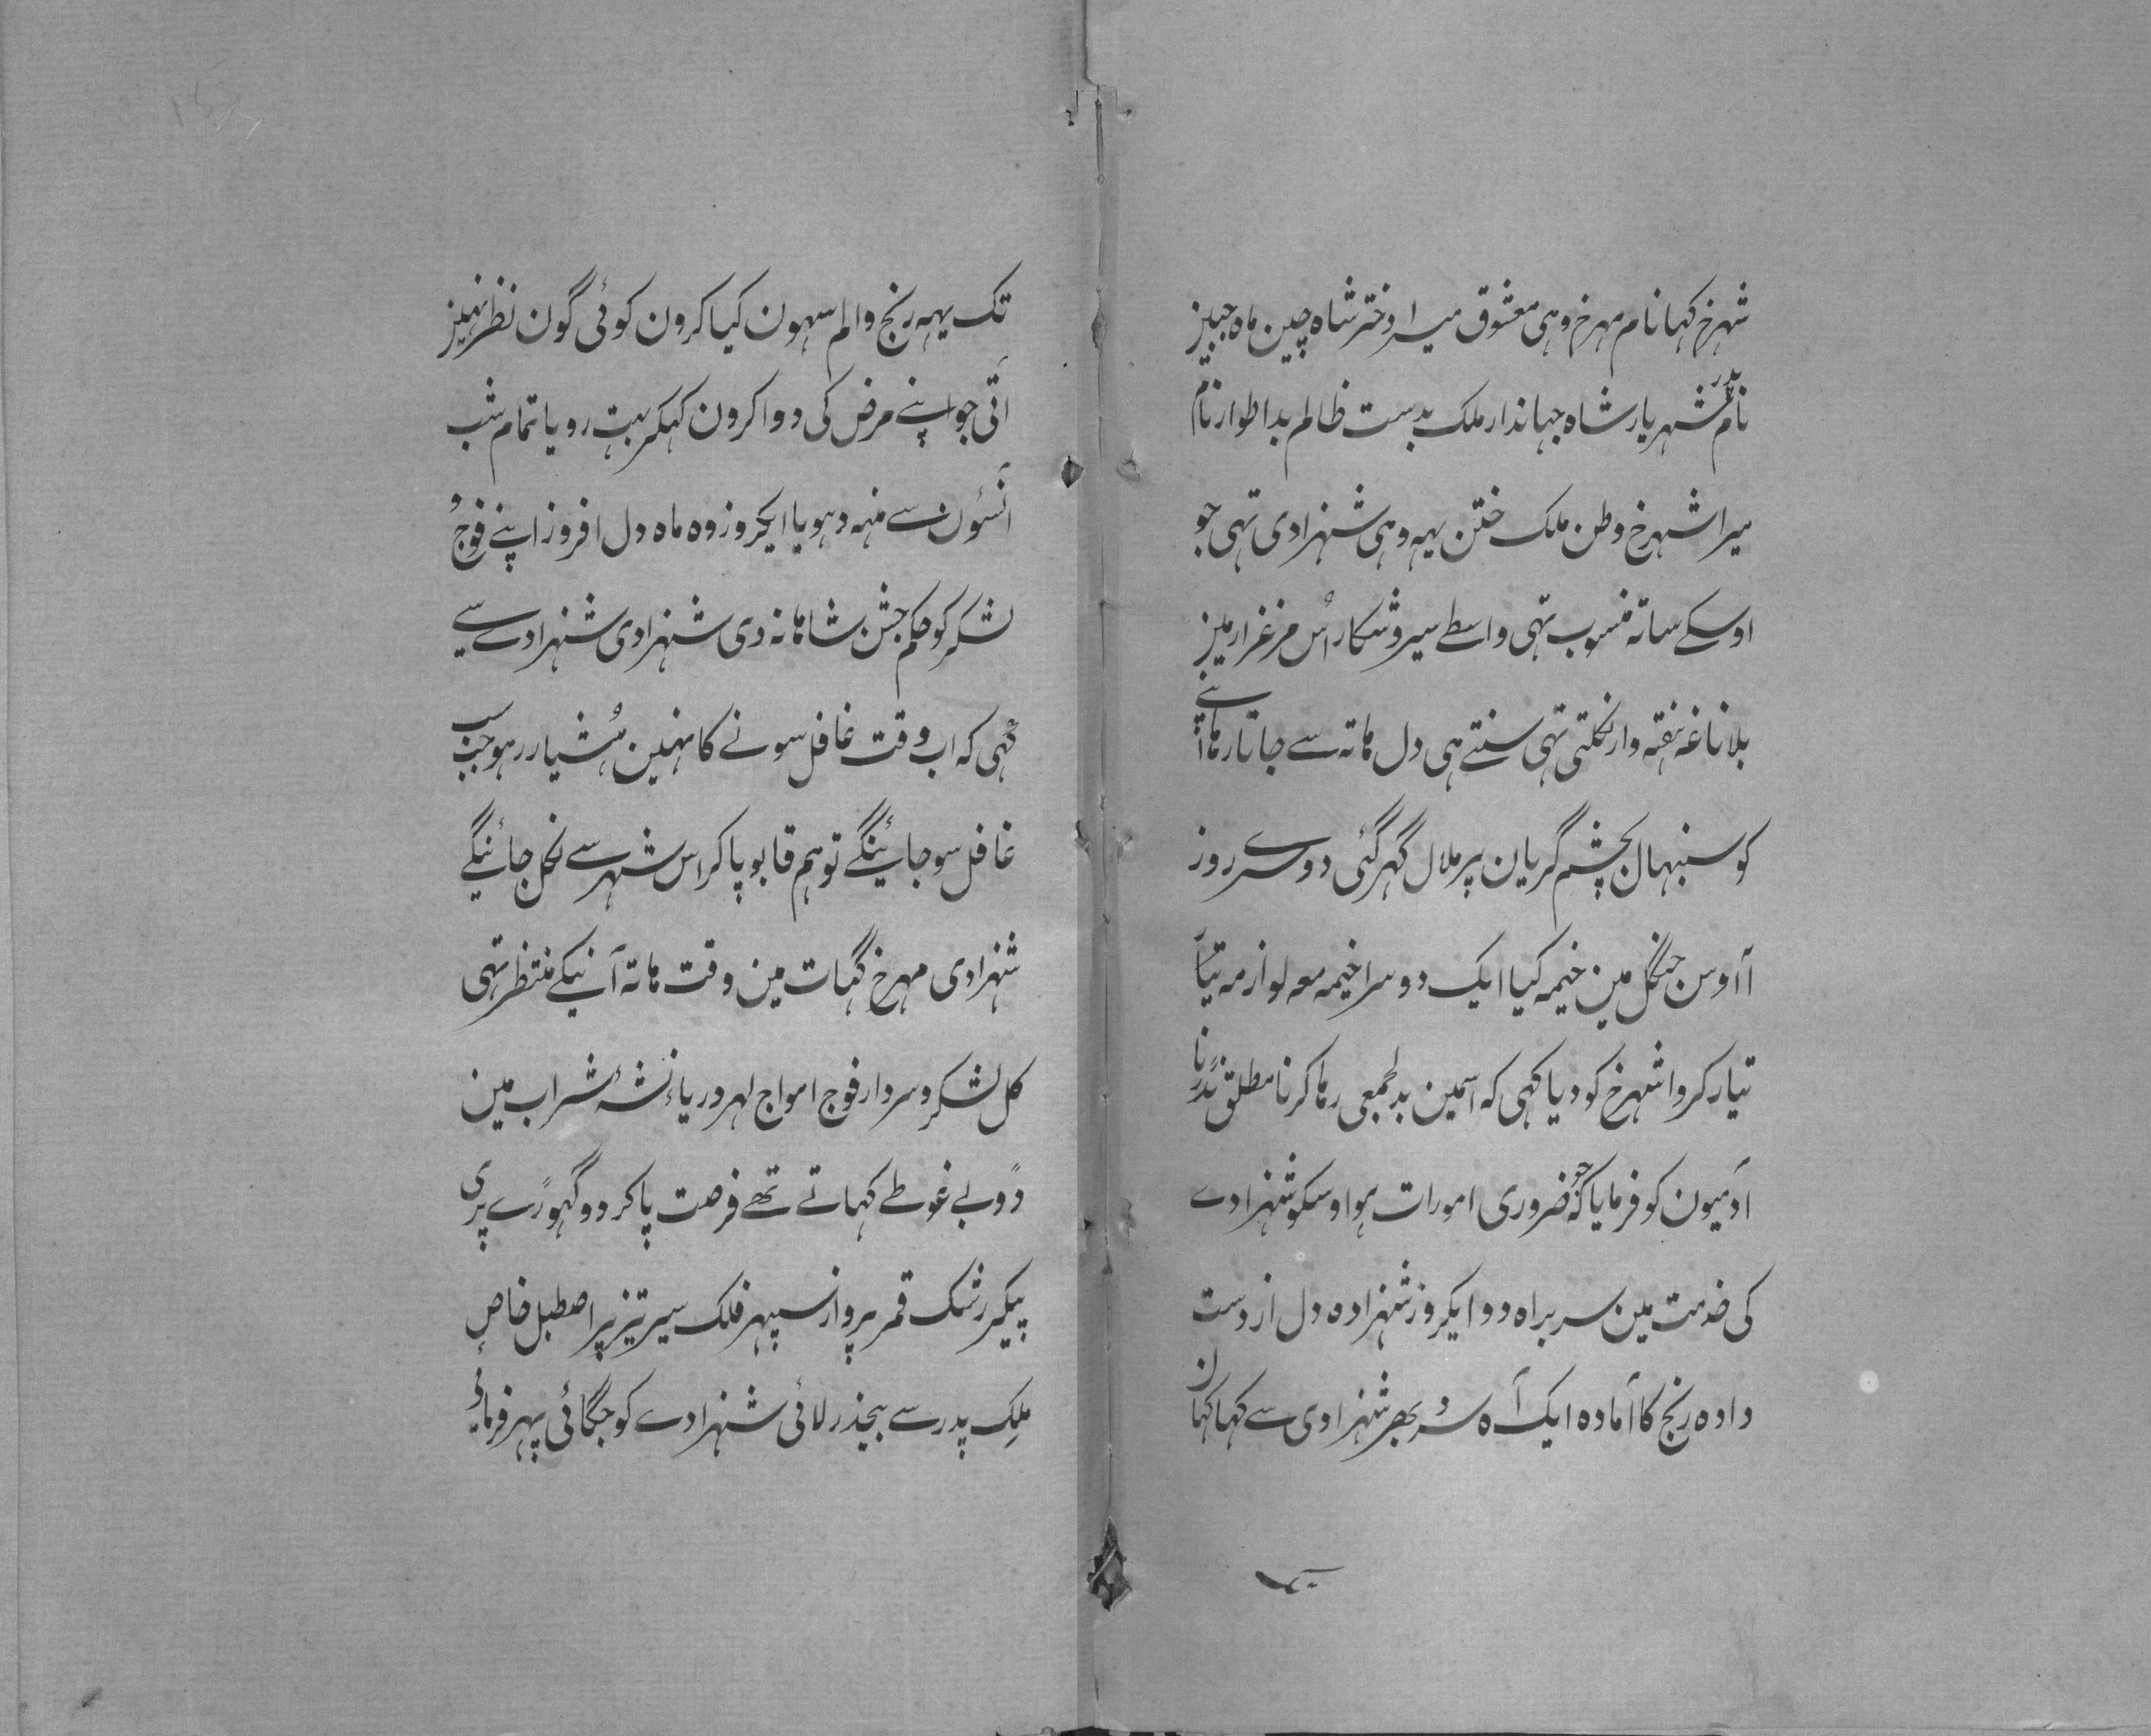 شہرخ کہا نام مہرخ وہی معشوق میرا دختر شاہ چین ماہ جبین
نام پدر شہریار شاہ جہاندار ملک بدست ظالم بد اطوار نام
میرا شہرخ وطن ملک ختن یہہ وہی شہزادی تہی جو
اوسکے ساتہ منسوب تہی واسطے سیر و شکار اُس مرغزار مین
بلا ناغہ ہفتہ وار نکلتی تہی سنتے ہی دل ہاتہ سے جاتا رہا اپنے
کو سنبہال بچشم گریان پر ملال گہر گئی دوسرے روز
آ اوس جنگل مین خیمہ کیا ایک دوسرا خیمہ معہ لوازمہ
تیار کروا شہرخ کو دیا کہی کہ اسمین بدلجمعی رہا کرنا مطلق نڈرنا
آدمیون کو فرمایا کہ جو ضروری امورات ہو اوسکو شہزادے
کی خدمت مین سربراہ دو ایکروز شہزادہ دل از دست
دادہ رنج کا آمادہ ایک آہ سرد بھر شہزادی سے کہا کہان
تک یہہ رنج و الم سہون کیا کرون کوئی گون نظر نہین
آتی جو اپنے مرض کی دوا کرون کہکر بہت رویا تمام شب
آنسُون سے منہہ دہویا ایکروز وہ ماہ دل افروز اپنے فوج و
لشکر کو حکم جشن شاہانہ دی شہزادی شہزادے سے
کہی کہ اب وقت غافل سونے کا نہین ہُشیار رہو جب سب
غافل سو جائینگے تو ہم قابو پاکر اس شہر سے نکل جائینگے
شہزادی مہرخ گہات مین وقت ہاتہ آنیکے منتظر تہی
کل لشکر و سردار فوج امواج لہر دریاء نشہ شراب مین
ڈوبے غوطے کہاتے تھے فرصت پاکر دو گہوڑے پری
پیکر رشک قمر پرواز سپہر فلک سیر تیز پر اصطبل خاص
ملِک پدر سے بیخدر لائی شہزادے کو جگائی پہر فرمائی